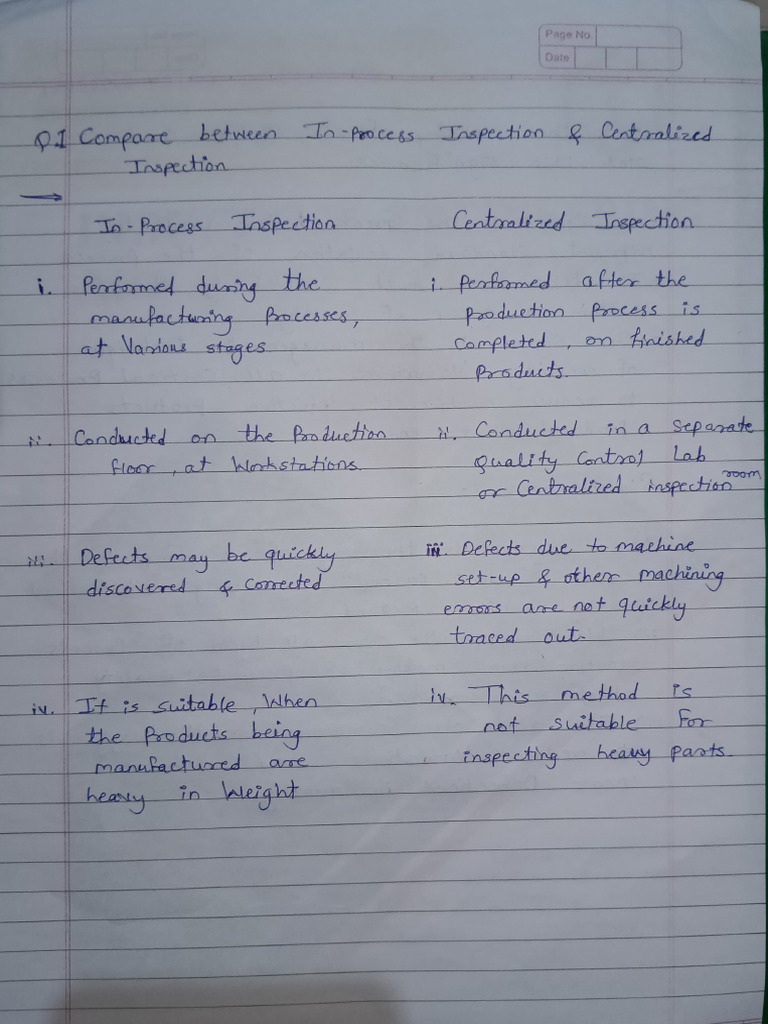 Page No.
Date
Q1 Compare between In-process Inspection & Centralized
Inspection
→
In-Process Inspection
Centralized Inspection
i. Performed during the
manufacturing Processes,
at Various stages
i. Performed after the
Production Process is
completed, on finished
Products.
ii. Conducted on the Production
floor, at Workstations.
ii. Conducted in a Separate
Quality Control Lab
or Centralized inspection room
iii. Defects may be quickly
discovered & Corrected
iii. Defects due to machine
set-up & other machining
errors are not quickly
traced out.
iv. It is suitable, When
the Products being
manufactured are
heavy in Weight
iv. This method is
not suitable For
inspecting heavy parts.